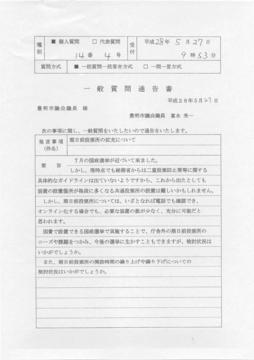 種別 ■ 個人質問 □ 代表質問 受付 平成28年5月27日
14番 4号 9時53分
質問方式 ■ 一括質問一括答弁方式 □ 一問一答方式
一般質問通告書
平成28年5月27日
豊明市議会議長 様
豊明市議会議員
次の事項に関し、一般質問をいたしたいので通告をいたします。
発言事項(件名) 期日前投票所の拡充について
要旨 7月の国政選挙が近づいて来ました。
しかし、現時点でも総務省からは二重投票防止策等に関する
具体的なガイドラインは出ていないようですから、これから出たとしても
装置の設置箇所が格段に多くなる共通投票所の設置は難しいかもしれません。
しかし、期日前投票所については、いざとなれば電話でも確認でき、
オンライン化する場合でも、必要な装置の数が少なく、充分に可能だと
思われます。
国費で設置できる国政選挙で実施することで、庁舎外の期日前投票所の
ニーズや課題をつかみ、今後の選挙に生かすこともできますが、検討状況は
いかがでしょうか。
また、期日前投票所の開設時間の繰り上げや繰り下げについての
検討状況はいかがでしょうか。